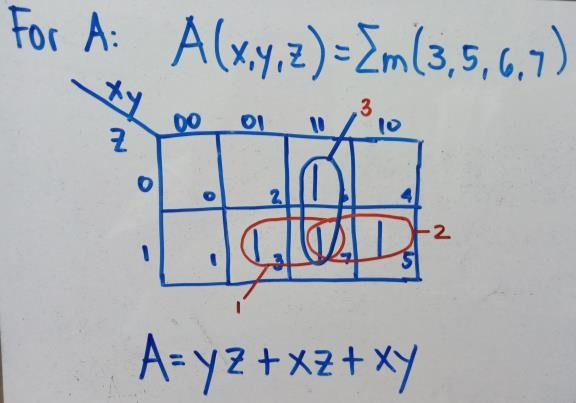 For A: A(x,y,z)=Σm(3,5,6,7)
xy
z
00 01 11 10
3
0 0 2 1 6 4
1 1 1 3 1 7 1 5
2
1
A=yz+xz+xy